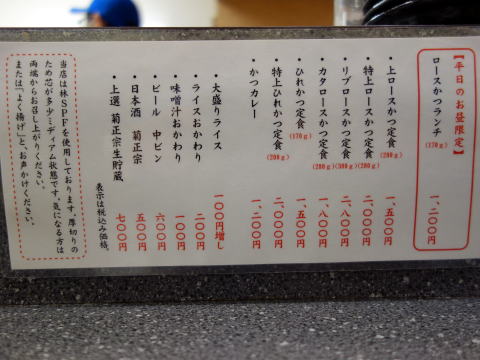 【平日のお昼限定】
ロースかつランチ(170g) 一、二〇〇円
・上ロースかつ定食 一、五〇〇円
・特上ロースかつ定食(280g) 二、〇〇〇円
・リブロースかつ定食(380g) 二、八〇〇円
・カタロースかつ定食(280g) 一、八〇〇円
・ひれかつ定食(170g) 一、五〇〇円
・特上ひれかつ定食 二、〇〇〇円
・かつカレー 一、二〇〇円
・大盛りライス 一〇〇円増し
・ライスおかわり 二〇〇円
・味噌汁おかわり 一〇〇円
・ビール 中ビン 六〇〇円
・日本酒 菊正宗 五〇〇円
・上選 菊正宗生貯蔵 七〇〇円
表示は税込み価格。
当店は林SPFを使用しております。厚切りの
ため芯が多少ミディアム状態です。気になる方は
両端からお召し上がりください。
または「よく揚げ」と、お声かけください。